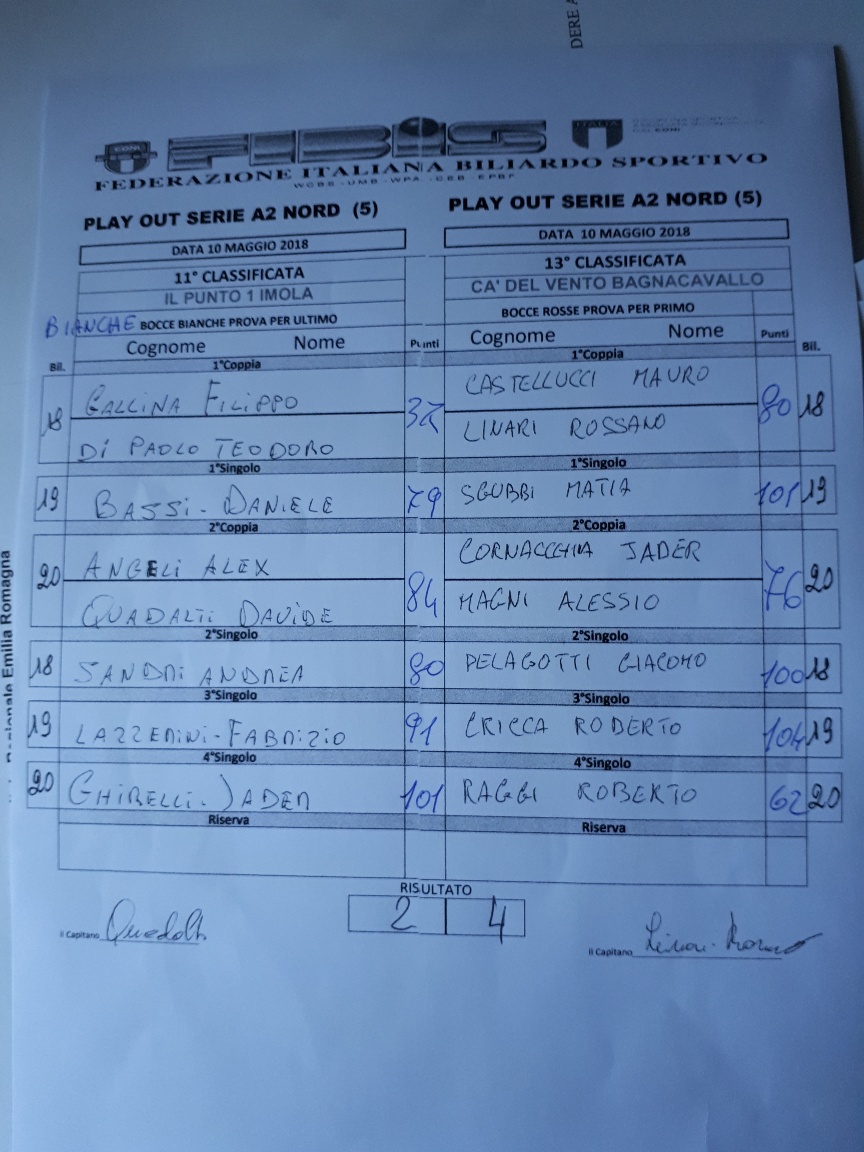 DERE A
FIBiS
ITALIA
CONI
FEDERAZIONE ITALIANA BILIARDO SPORTIVO
WCBS - UMB - WPA - CEB - EPBF
PLAY OUT SERIE A2 NORD (5)
DATA 10 MAGGIO 2018
11° CLASSIFICATA
IL PUNTO 1 IMOLA
BIANCHE BOCCE BIANCHE PROVA PER ULTIMO
Bil. Cognome Nome Punti
1°Coppia
18 GALLINA FILIPPO
DI PAOLO TEODORO
1°Singolo
19 BASSI - DANIELE 79
2°Coppia
20 ANGELI ALEX 84
QUADALTI DAVIDE
2°Singolo
18 SANDRI ANDREA 80
3°Singolo
19 LAZZERINI - FABRIZIO 91
4°Singolo
20 GHIRELLI - JADER 101
Riserva
PLAY OUT SERIE A2 NORD (5)
DATA 10 MAGGIO 2018
13° CLASSIFICATA
CA' DEL VENTO BAGNACAVALLO
BOCCE ROSSE PROVA PER PRIMO
Cognome Nome Punti Bil.
1°Coppia
CASTELLUCCI MAURO 80 18
LINARI ROSSANO
1°Singolo
SGUBBI MATIA 101 19
2°Coppia
CORNACCHIA JADER 76 20
MAGNI ALESSIO
2°Singolo
PELAGOTTI GIACOMO 100 18
3°Singolo
CRICCA ROBERTO 104 19
4°Singolo
RAGGI ROBERTO 62 20
Riserva
RISULTATO
2 4
il Capitano
il Capitano
Regionale Emilia Romagna